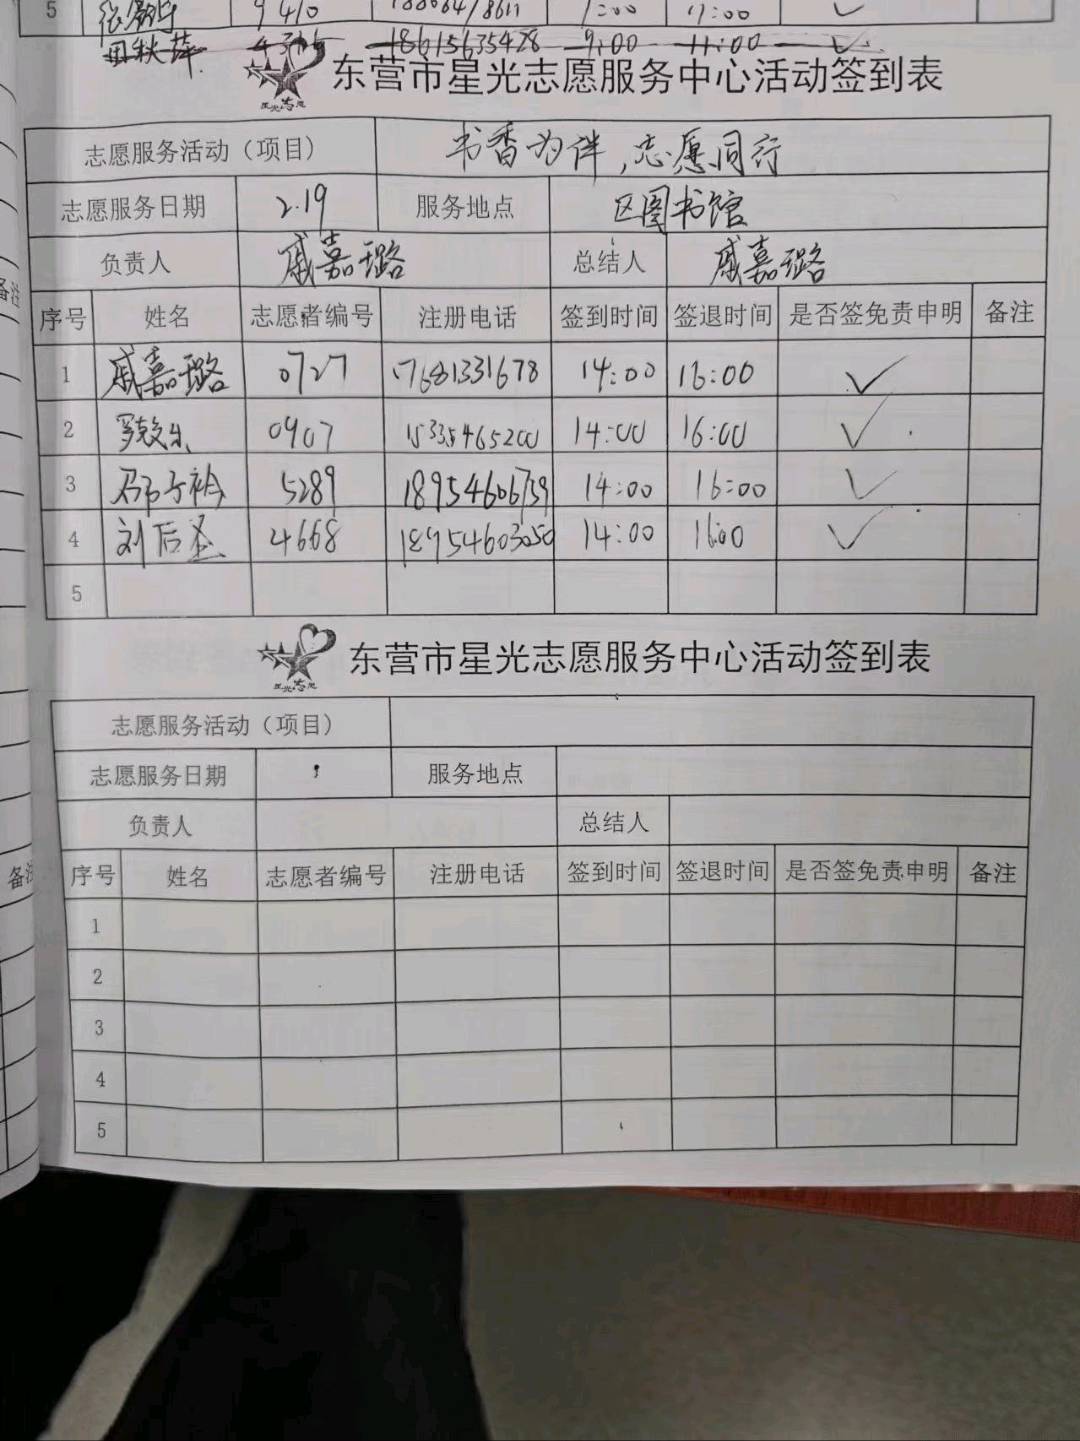 5 9410 11:00
田秋萍 18615635428 9:00 11:00
东营市星光志愿服务中心活动签到表
志愿服务活动（项目） 书香为伴,志愿同行
志愿服务日期 2.19 服务地点 区图书馆
负责人 戚嘉璐 总结人 戚嘉璐
序号 姓名 志愿者编号 注册电话 签到时间 签退时间 是否签免责申明 备注
1 戚嘉璐 0727 17681331678 14:00 16:00 ✓
2 0907 15335465200 14:00 16:00 ✓
3 5289 18954606739 14:00 16:00 ✓
4 刘后圣 4668 18954603050 14:00 16:00 ✓
5
星光志愿
东营市星光志愿服务中心活动签到表
志愿服务活动（项目）
志愿服务日期 服务地点
负责人 总结人
备注 序号 姓名 志愿者编号 注册电话 签到时间 签退时间 是否签免责申明 备注
1
2
3
4
5